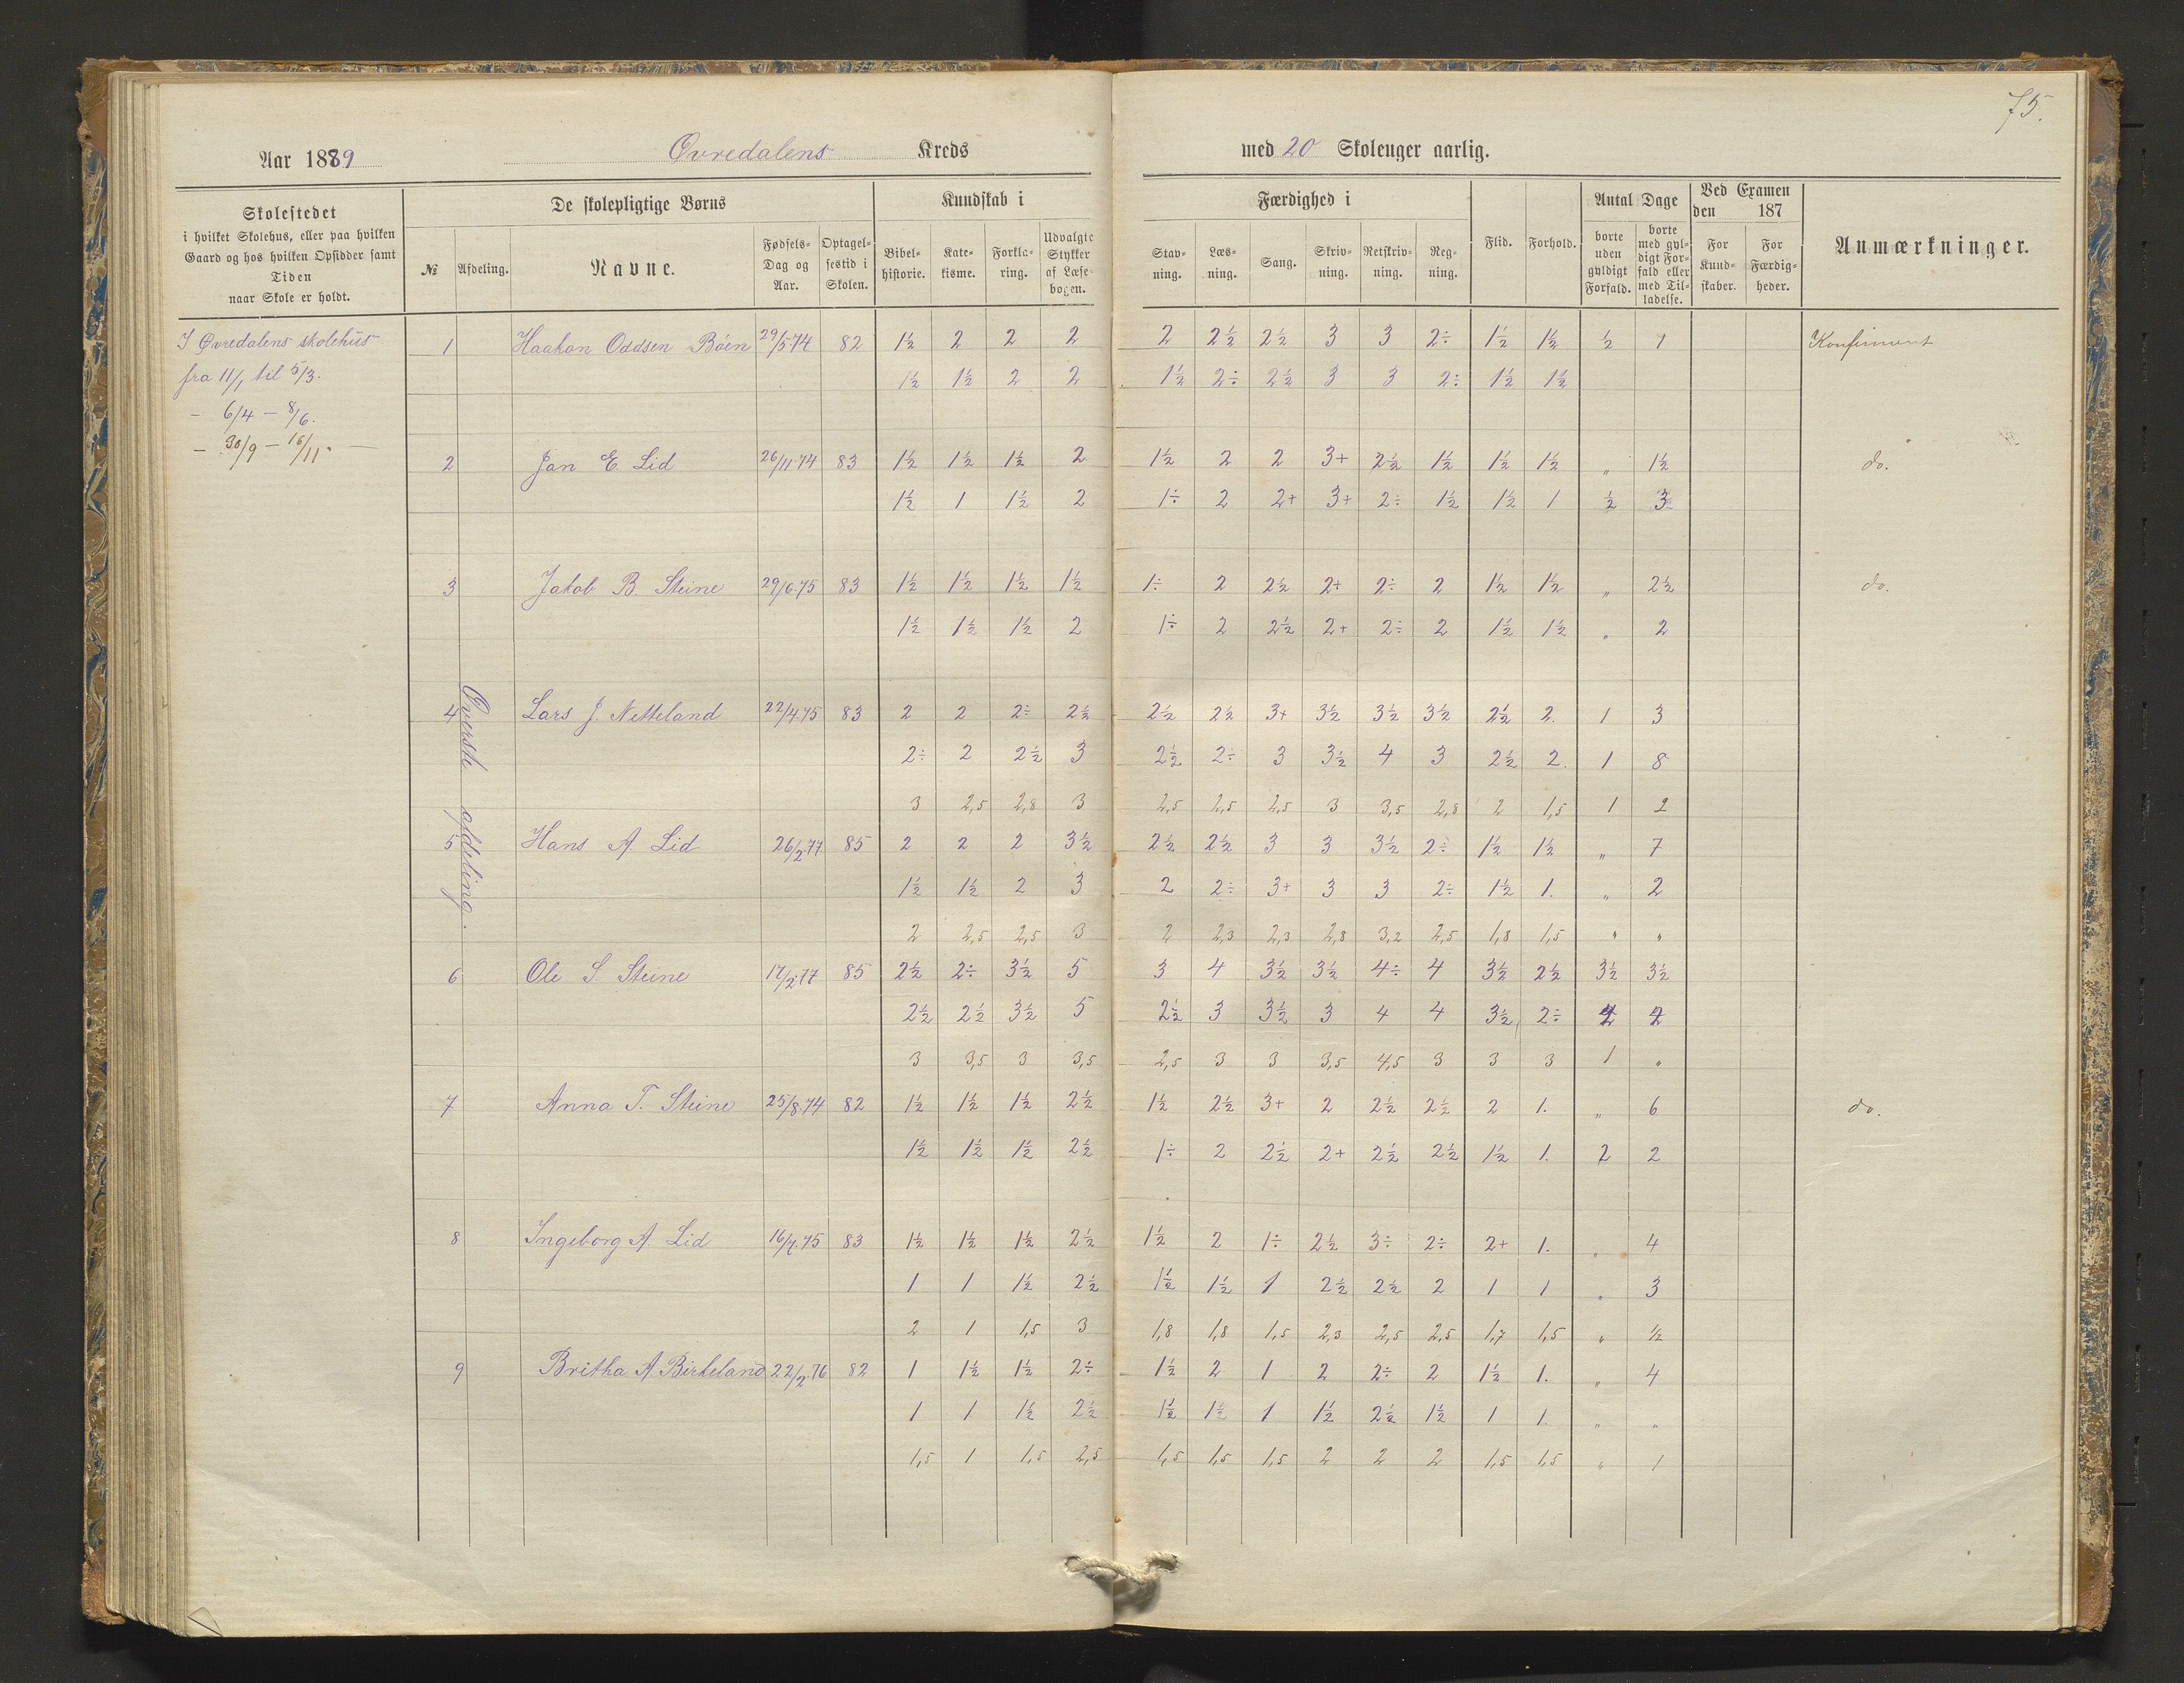 75.
Aar 1889 Øvredalens Kreds med 20 Skoleuger aarlig.
Skolestedet
i hvilket Skolehus, eller paa hvilken
Gaard og hos hvilken Opsidder samt
Tiden
naar Skole er holdt.
De skolepligtige Børns
№ Afdeling. Navne. Fødsels-Dag og Aar. Optagelsestid i Skolen.
Kundskab i
Bibelhistorie. Katekisme. Forklaring. Udvalgte Stykker af Læsebogen.
Færdighed i
Stavning. Læsning. Sang. Skrivning. Retskrivning. Regning.
Flid. Forhold.
Antal Dage
borte uden gyldigt Forfald. borte med gyldigt Forfald eller med Tilladelse.
Ved Examen
den 187
For Kundskaber. For Færdigheder.
Anmærkninger.
I Øvredalens skolehus
fra 11/1 til 5/3.
- 6/4 - 8/6.
- 30/9 - 16/11. -
Øverste afdeling.
1 Haakon Oddsen Böen 29/5 74 82 1½ 2 2 2 2 2½ 2½ 3 3 2÷ 1½ 1½ ½ 7 Konfirmert
1½ 1½ 2 2 1½ 2÷ 2½ 3 3 2÷ 1½ 1½
2 Jan E. Lid 26/11.74 83 1½ 1½ 1½ 2 1½ 2 2 3+ 2½ 1½ 1½ 1½ " 1½ do.
1½ 1 1½ 2 1÷ 2 2+ 3+ 2÷ 1½ 1½ 1 ½ 3
3 Jakob B. Steine 29/6.75 83 1½ 1½ 1½ 1½ 1÷ 2 2½ 2+ 2÷ 2 1½ 1½ " 2½ do.
1½ 1½ 1½ 2 1÷ 2 2½ 2+ 2÷ 2 1½ 1½ " 2
4 Lars J. Netteland 22/4.75 83 2 2 2÷ 2½ 2½ 2½ 3+ 3½ 3½ 3½ 2½ 2. 1 3
2÷ 2 2½ 3 2½ 2÷ 3 3½ 4 3 2½ 2. 1 8
3 2,5 2,8 3 2,5 2,5 2,5 3 3,5 2,8 2 1,5 1 2
5 Hans A. Lid 26/2.77 85 2 2 2 3½ 2½ 2½ 3 3 3½ 2÷ 1½ 1½ " 7
1½ 1½ 2 3 2 2÷ 3+ 3 3 2÷ 1½ 1. " 2
2 2,5 2,5 3 2 2,3 2,3 2,8 3,2 2,5 1,8 1,5 " "
6 Ole S. Steine 17/2.77 85 2½ 2÷ 3½ 5 3 4 3½ 3½ 4÷ 4 3½ 2½ 3½ 3½
2½ 2½ 3½ 5 2½ 3 3½ 3 4 4 3½ 2÷
3 3,5 3 3,5 2,5 3 3 3,5 4,5 3 3 3 1 "
7 Anna T. Steine 25/8.74 82 1½ 1½ 1½ 2½ 1½ 2½ 3+ 2 2½ 2½ 2 1. " 6 do.
1½ 1½ 1½ 2½ 1÷ 2 2½ 2+ 2½ 2½ 1½ 1. 2 2
8 Ingeborg A. Lid 16/7.75 83 1½ 1½ 1½ 2½ 1½ 2 1÷ 2½ 3÷ 2÷ 2+ 1. " 4
1 1 1½ 2½ 1½ 1½ 1 2½ 2½ 2 1 1 " 3
2 1 1,5 3 1,8 1,8 1,5 2,3 2,5 2,5 1,7 1,5 " ½
9 Britha A. Birkeland 22/2.76 82 1 1½ 1½ 2÷ 1½ 2 1 2 2÷ 2 1½ 1. " 4
1 1 1½ 2½ 1½ 1½ 1 1½ 2½ 1½ 1 1. " "
1,5 1 1,5 2,5 1,5 1,5 1,5 2 2 2 1,5 1,5 " 1